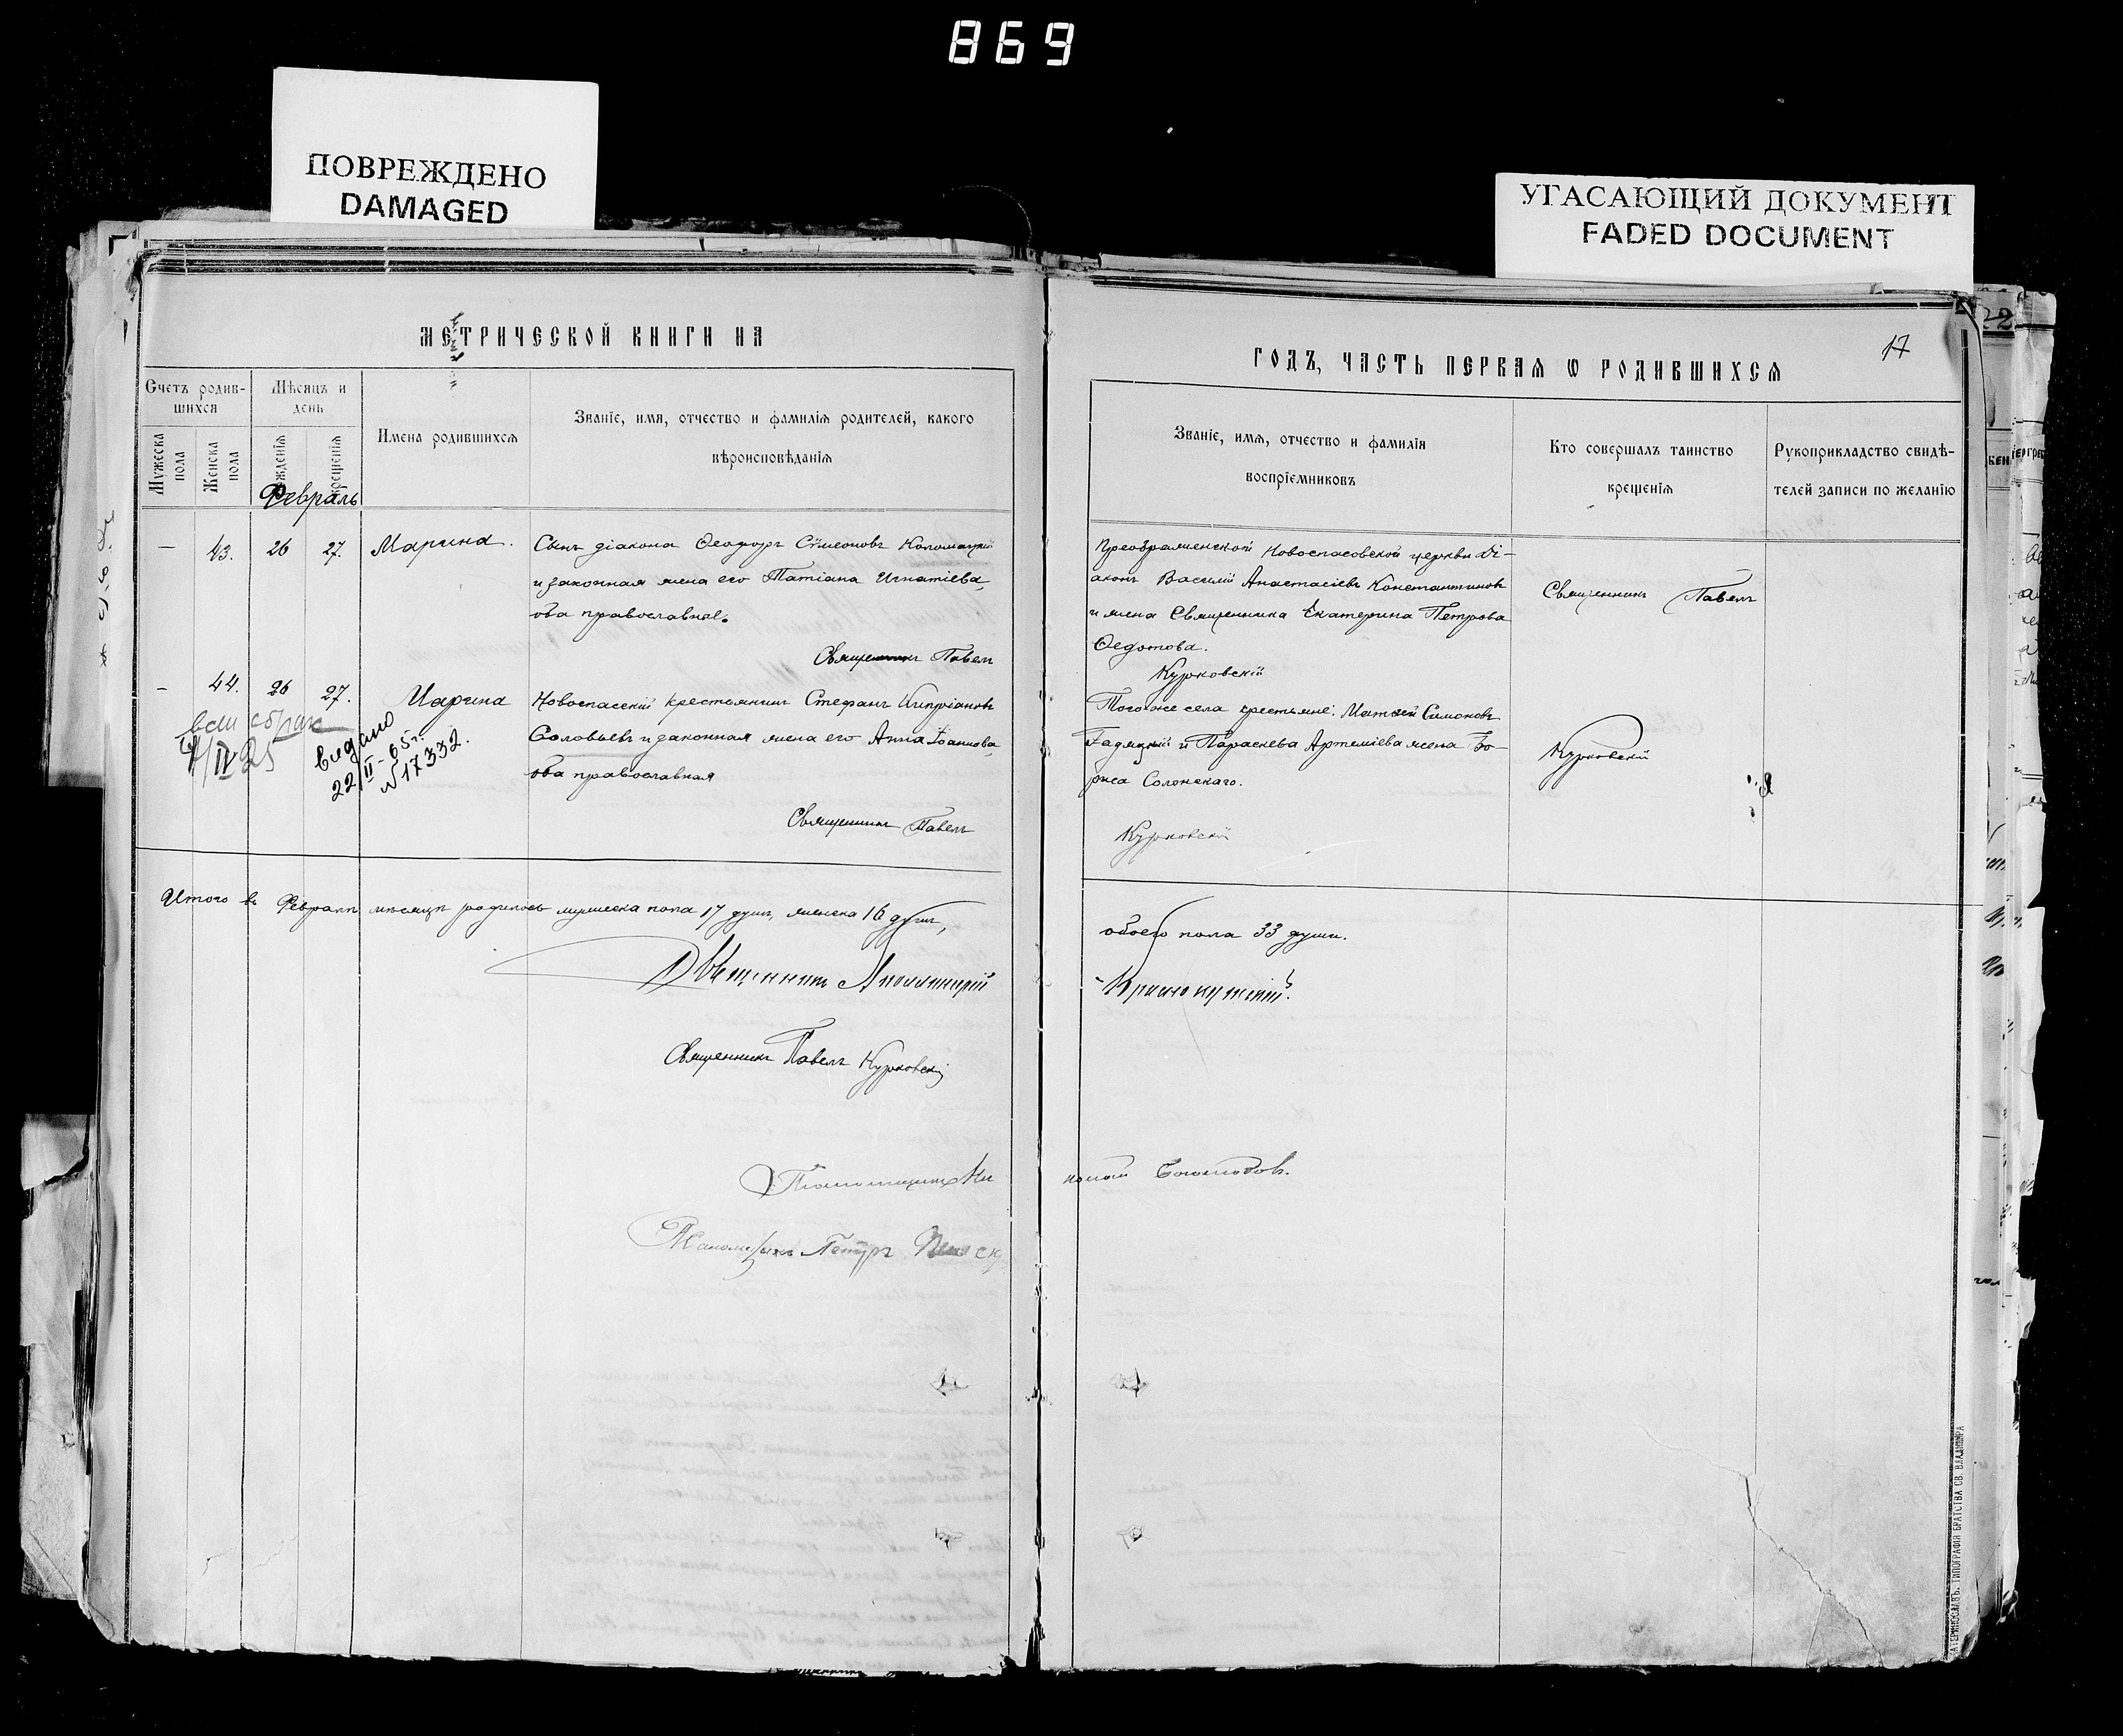 869
ПОВРЕЖДЕНО
DAMAGED
УГАСАЮЩИЙ ДОКУМЕНТ
FADED DOCUMENT
МЕТРИЧЕСКОЙ КНИГИ НА
ГОДЪ, ЧАСТЬ ПЕРВАЯ Ѡ РОДИВШИХСЯ
17
22
Счетъ родив-
шихся
Мужеска пола
Женска пола
Мѣсяцъ и
день
рожденія
крещенія
Имена родившихся
Званіе, имя, отчество и фамилія родителей, какого
вѣроисповѣданія
Званіе, имя, отчество и фамилія
воспріемниковъ
Кто совершалъ таинство
крещенія
Рукоприкладство свидѣ-
телей записи по желанію
Февраль
— 43. 26 27. Марина.
Сынъ діакона Ѳеодоръ Сѵмеоновъ Коломацкій
и законная жена его Татіана Игнатіева,
оба православные.
Священникъ Павелъ
Преображенской Новоспасовской церкви Ді-
аконъ Василій Анастасіевъ Константиновъ
и жена Священника Екатерина Петрова
Ѳедотова.
Курковскій
Священникъ Павелъ
- 44. 26 27. Марина
Новоспасскій крестьянинъ Стефанъ Кипріановъ
Соловьевъ и законная жена его Анна Іоаннова,
оба православная
Священникъ Павелъ
Того же села крестьяне: Матѳей Симоновъ
Гадяцкій и Параскева Артеміева жена Бо-
риса Солонскаго.
Курковскій
Курковскій
IV 25
видано
22/II-65 г.
№ 17332.
Итого въ Февралѣ мѣсяцѣ родилось мужеска пола 17 душъ, женска 16 душъ,
обоего пола 33 души.
Священникъ Аполлинарій
Краснокутскій.
Священникъ Павелъ Курковскій
Псаломщикъ Ни
колай
Псаломщикъ Петръ
ЕКАТЕРИНОСЛАВЪ. ТИПОГРАФІЯ БРАТСТВА СВ. ВЛАДИМІРА